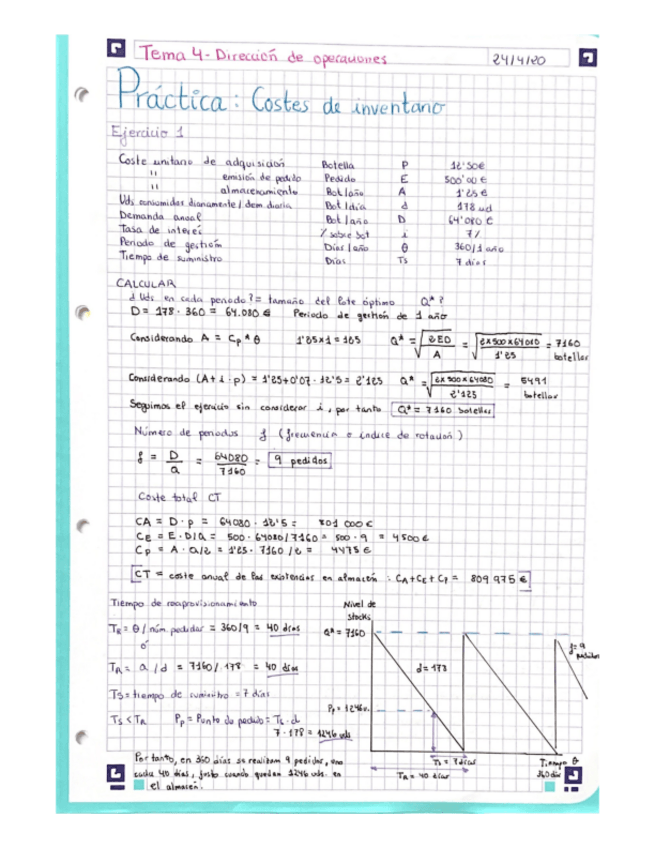 Tema 4 - Dirección de operaciones 24/4/20
Práctica: Costes de inventario
Ejercicio 1
Coste unitario de adquisición Botella P 12'50€
" emisión de pedido Pedido E 500'00 €
" almacenamiento Bot/año A 1'25 €
Uds consumidas diariamente / dem. diaria Bot/día d 178 ud
Demanda anual Bot/año D 64'080 €
Tasa de interés % sobre bot i 7%
Periodo de gestión Días/año θ 360/1 año
Tiempo de suministro Días Ts 7 días
CALCULAR
d Uds. en cada periodo? = tamaño del lote óptimo Q* ?
D = 178 · 360 = 64.080 € Periodo de gestión de 1 año
Considerando A = Cp * θ 1'25x1 = 125 Q* = √2ED/A = √2x500x64080/1'25 = 7160 botellas
Considerando (A + i · p) = 1'25+0'07 · 12'5 = 2'125 Q* = √2x500x64080/2'125 = 5491 botellas
Seguimos el ejercicio sin considerar i, por tanto Q* = 7160 botellas
Número de periodos f (frecuencia o índice de rotación)
f = D/Q = 64080/7160 = 9 pedidos
Coste total CT
CA = D · p = 64080 · 12'5 = 801 000 €
CE = E · D/Q = 500 · 64080/7160 = 500 · 9 = 4500 €
Cp = A · Q/2 = 1'25 · 7160/2 = 4475 €
CT = coste anual de las existencias en almacén : CA + CE + Cp = 809 975 €
Tiempo de reaprovisionamiento
TR = θ / núm. pedidos = 360/9 = 40 días
ó
TR = Q / d = 7160/178 = 40 días
TS = tiempo de suministro = 7 días
TS < TR Pp = Punto de pedido = Ts · d
7 · 178 = 1246 uds
Por tanto, en 360 días se realizan 9 pedidos, uno
cada 40 días, justo cuando quedan 1246 uds. en
el almacén.
Nivel de
stocks
Q* = 7160
f = 9
pedidos
d = 178
Pp = 1246u.
Ts = 7 días
TR = 40 días
Tiempo θ
360 días